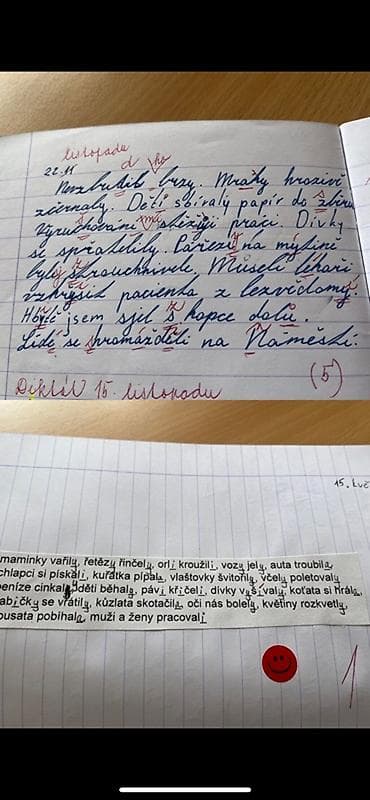 listopadu
22.11
d ho
Nezbudil brzy. Mraky hrozivě
zčernaly. Děti sbíraly papír do sběru
Vyrušování mně stěžuji práci. Dívky
se spřátelily. Pařezy na mýtině
byly ztrouchnivělé. Museli lékaři
vzkřísit pacienta z bezvědomí.
Horě jsem sjel s kopce dolů.
Lidé se shromáždili na Náměstí.
(5)
Diktát 15. listopadu
15. kvě
maminky vařily, řetězy řinčely, orli kroužili, vozy jely, auta troubila
chlapci si pískali, kuřátka pípala, vlaštovky švitořily, včely poletovaly
peníze cinkaly, děti běhaly, pávi křičeli, dívky vyšívaly, koťata si hrála,
abičky se vrátily, kůzlata skotačila, oči nás bolely, květiny rozkvetly,
ousata pobíhala, muži a ženy pracovali
1